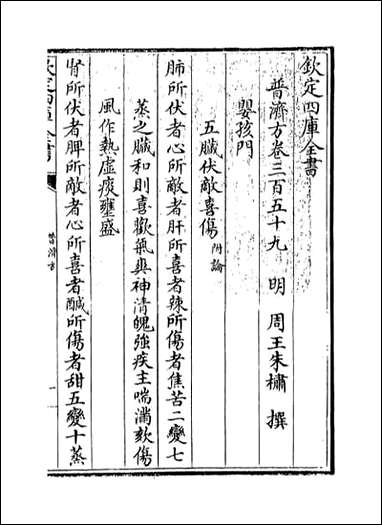 欽定四庫全書
普濟方卷三百五十九　明　周王朱橚　撰
嬰孩門
五臟伏敵喜傷附論
肺所伏者心所敵者肝所喜者辣所傷者焦苦二變七
蒸之臟和則喜歡氣爽神清魄強疾主喘滿欬傷
風作熱虛痰壅盛
腎所伏者脾所敵者心所喜者鹹所傷者甜五變十蒸
欽定四庫全書
普濟方
一